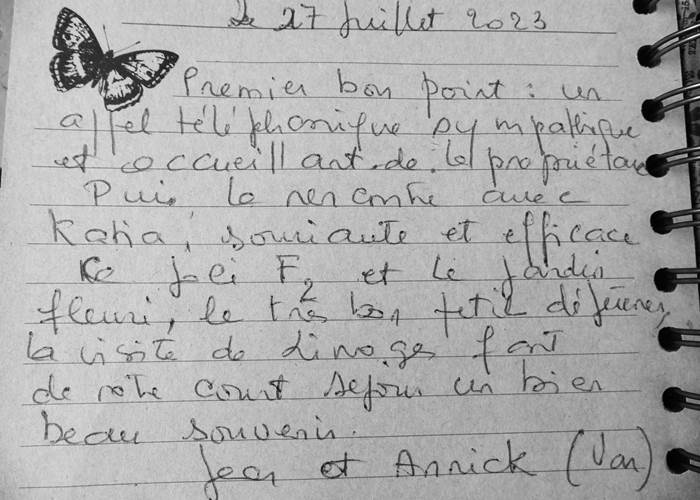 Le 27 Juillet 2023
Premier bon point : un
appel téléphonique sympathique
et accueillant de la propriétaire
Puis la rencontre avec
Katia, souriante et efficace
Le joli F2 et le jardin
fleuri, le très bon petit déjeuner,
la visite de Limoges font
de notre court séjour un bien
beau souvenir.
Jean et Annick (Var)